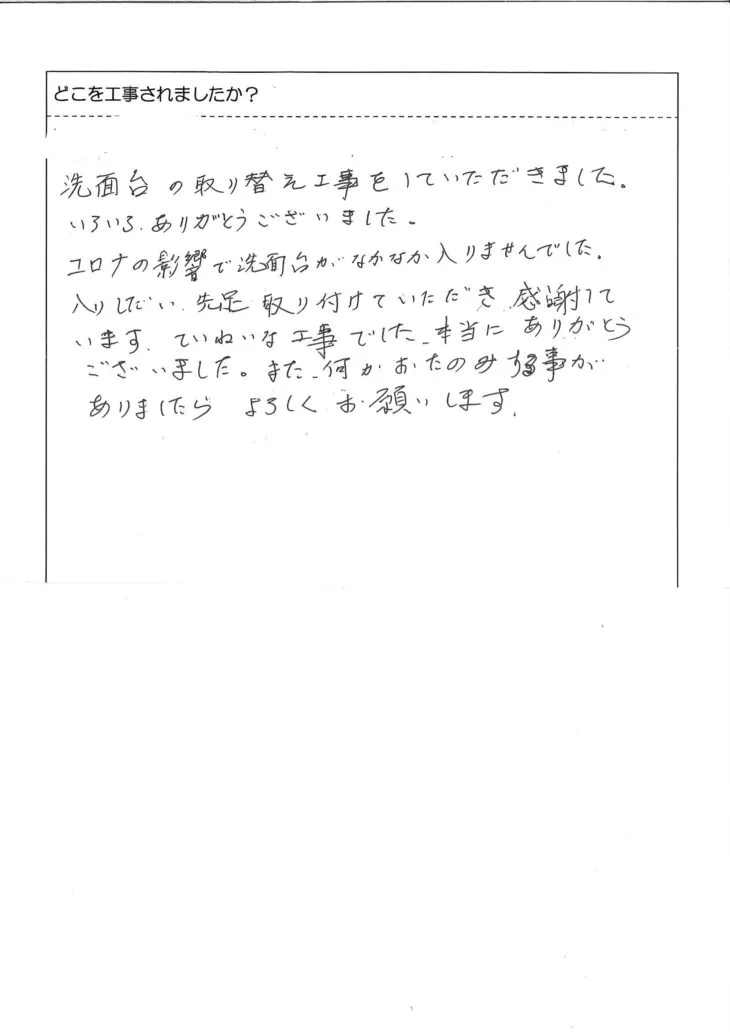 どこを工事されましたか？
洗面台の取り替え工事をしていただきました。
いろいろ、ありがとうございました。
コロナの影響で洗面台がなかなか入りませんでした。
入りしだい、先足 取り付けていただき、感謝して
います。ていねいな工事でした、本当に ありがとう
ございました。また、何かおたのみする事が
ありましたら よろしく お願いします。